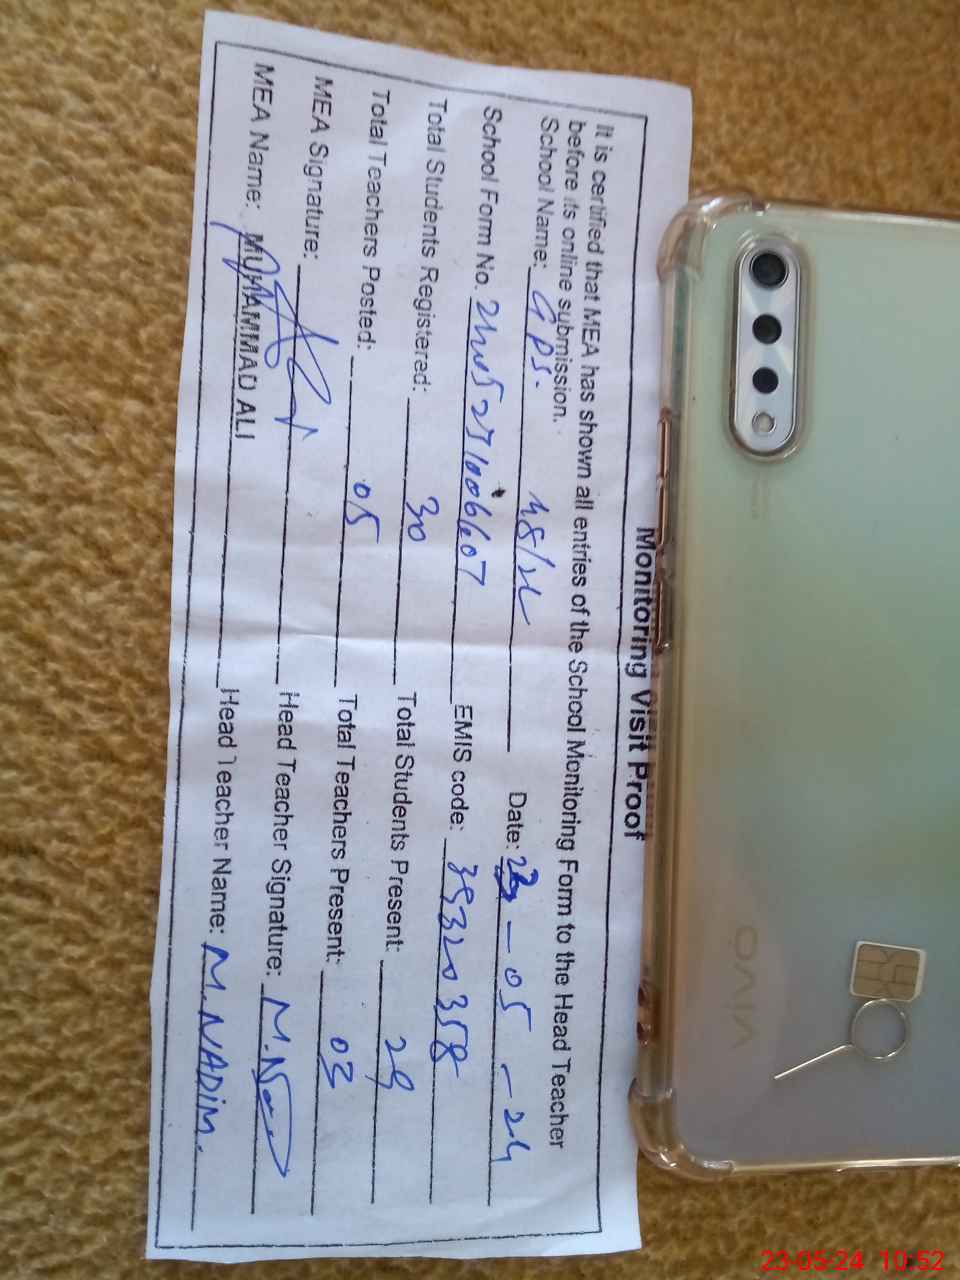 Monitoring Visit Proof
It is certified that MEA has shown all entries of the School Monitoring Form to the Head Teacher
before its online submission.
School Name: GPS. 48/2L Date: 23-05-24
School Form No. EMIS code: 35320358
Total Students Registered: 30 Total Students Present: 29
Total Teachers Posted: 05 Total Teachers Present: 03
MEA Signature: Head Teacher Signature:
MEA Name: MUHAMMAD ALI Head Teacher Name: M.NADIM.
vivo
23-05-24 10:52